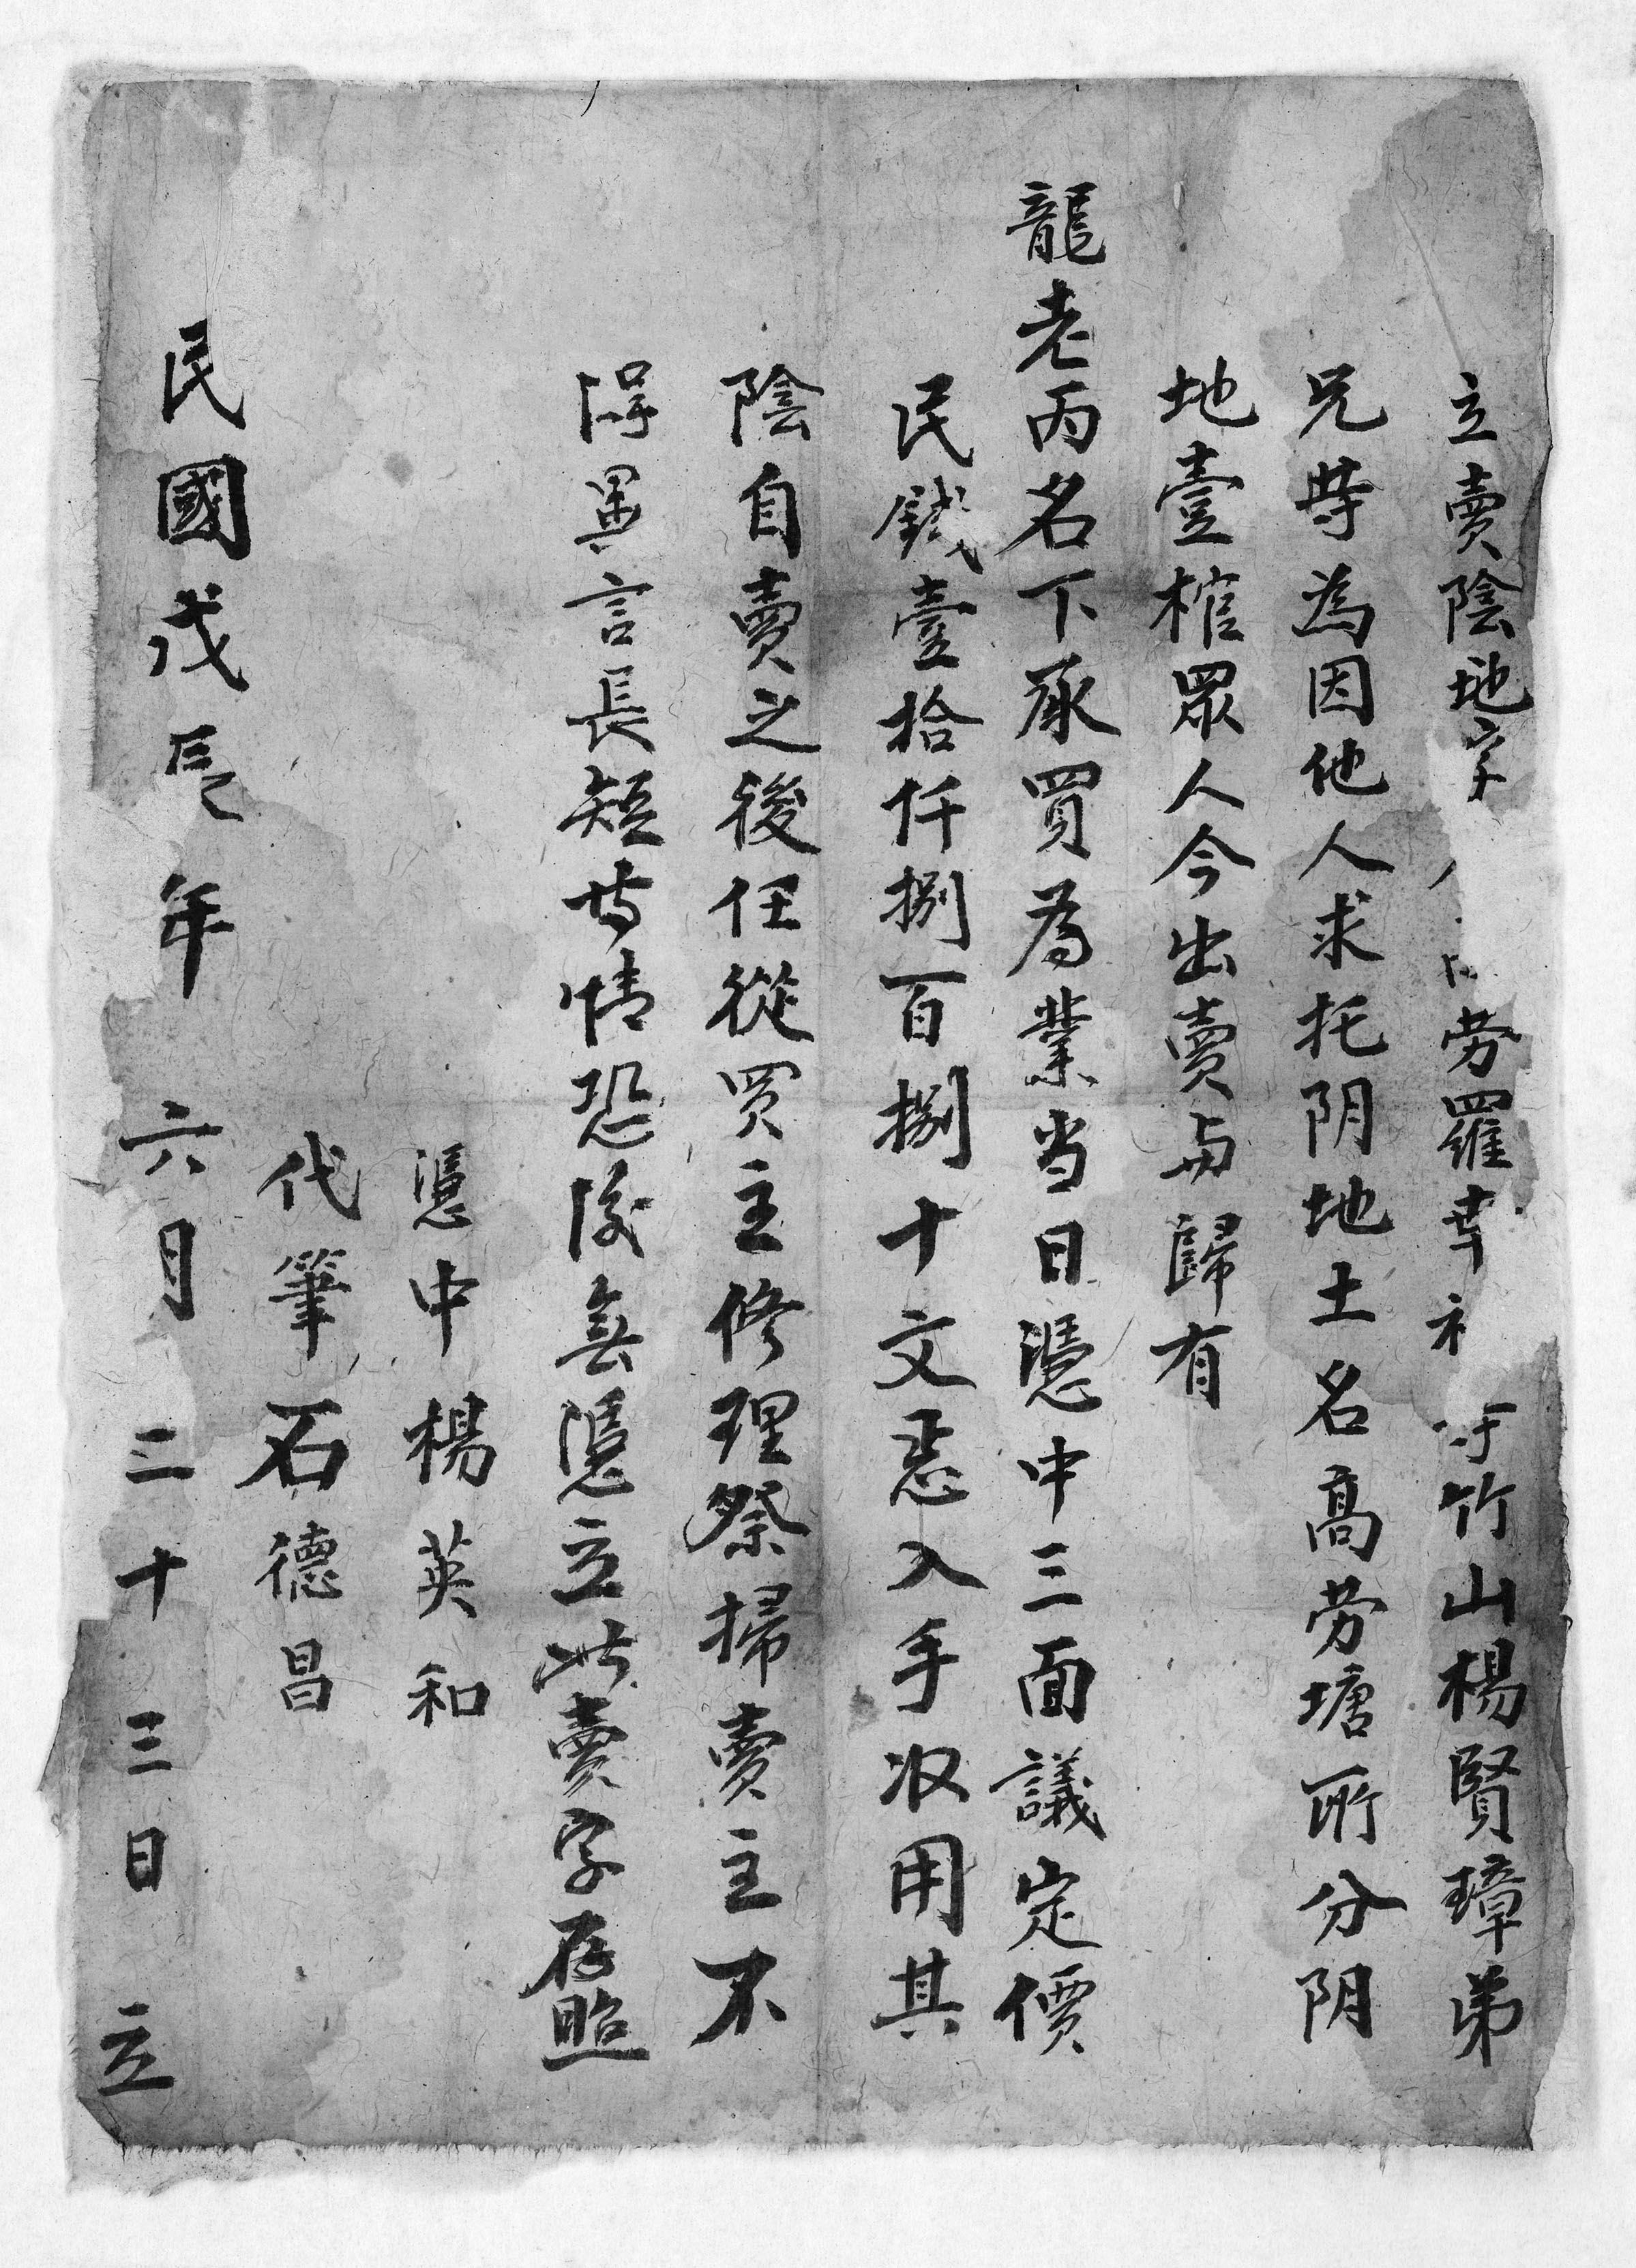 立賣陰地字人高劳羅幸礼岑竹山楊賢璋弟
兄等為因他人求托阴地土名髙劳塘所分阴
地壹棺眾人今出賣与歸有
龍老丙名下承買為業当日凴中三面議定價
民錢壹拾仟捌百捌十文悉入手収用其
陰自賣之後任從買主修理祭掃賣主不
得異言長短等情恐後無凴立此賣字存照
凴中楊英和
代筆石德昌
民國戊辰年六月二十三日立